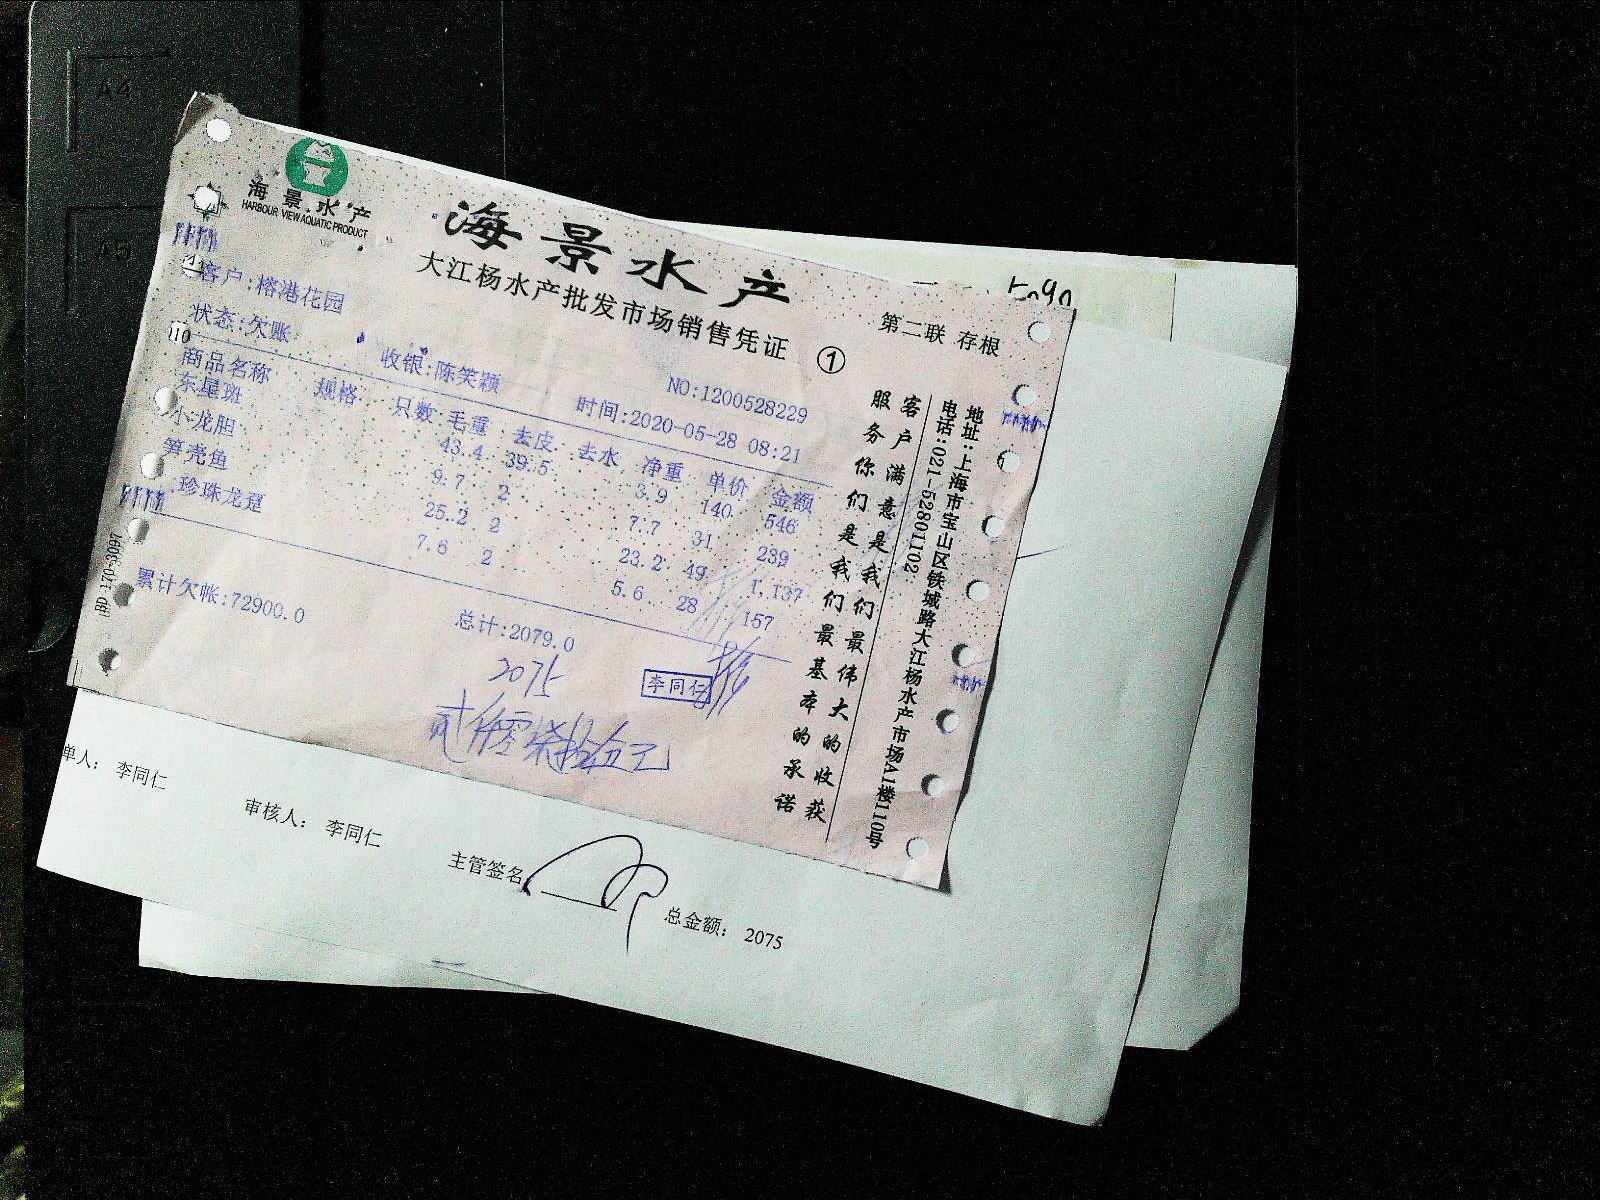 A4
A5
海景水产
HARBOUR VIEW AQUATIC PRODUCT
海景水产
大江杨水产批发市场销售凭证 ①
第二联 存根
客户:榕港花园
状态:欠账
收银:陈笑颖
NO:1200528229
时间:2020-05-28 08:21
商品名称 规格 只数 毛重 去皮 去水 净重 单价 金额
东星斑 43.4 39.5 3.9 140 546
小龙胆 9.7 2 7.7 31 239
笋壳鱼 25.2 2 23.2 49 1,137
珍珠龙趸 7.6 2 5.6 28 157
累计欠帐:72900.0
总计:2079.0
2075
李同仁
贰仟零柒拾伍元
客户满意是我们最伟大的收获
服务你们是我们最基本的承诺
地址:上海市宝山区铁城路大江杨水产市场A1楼110号
电话:021-52801102
单人: 李同仁
审核人: 李同仁
主管签名:
总金额: 2075